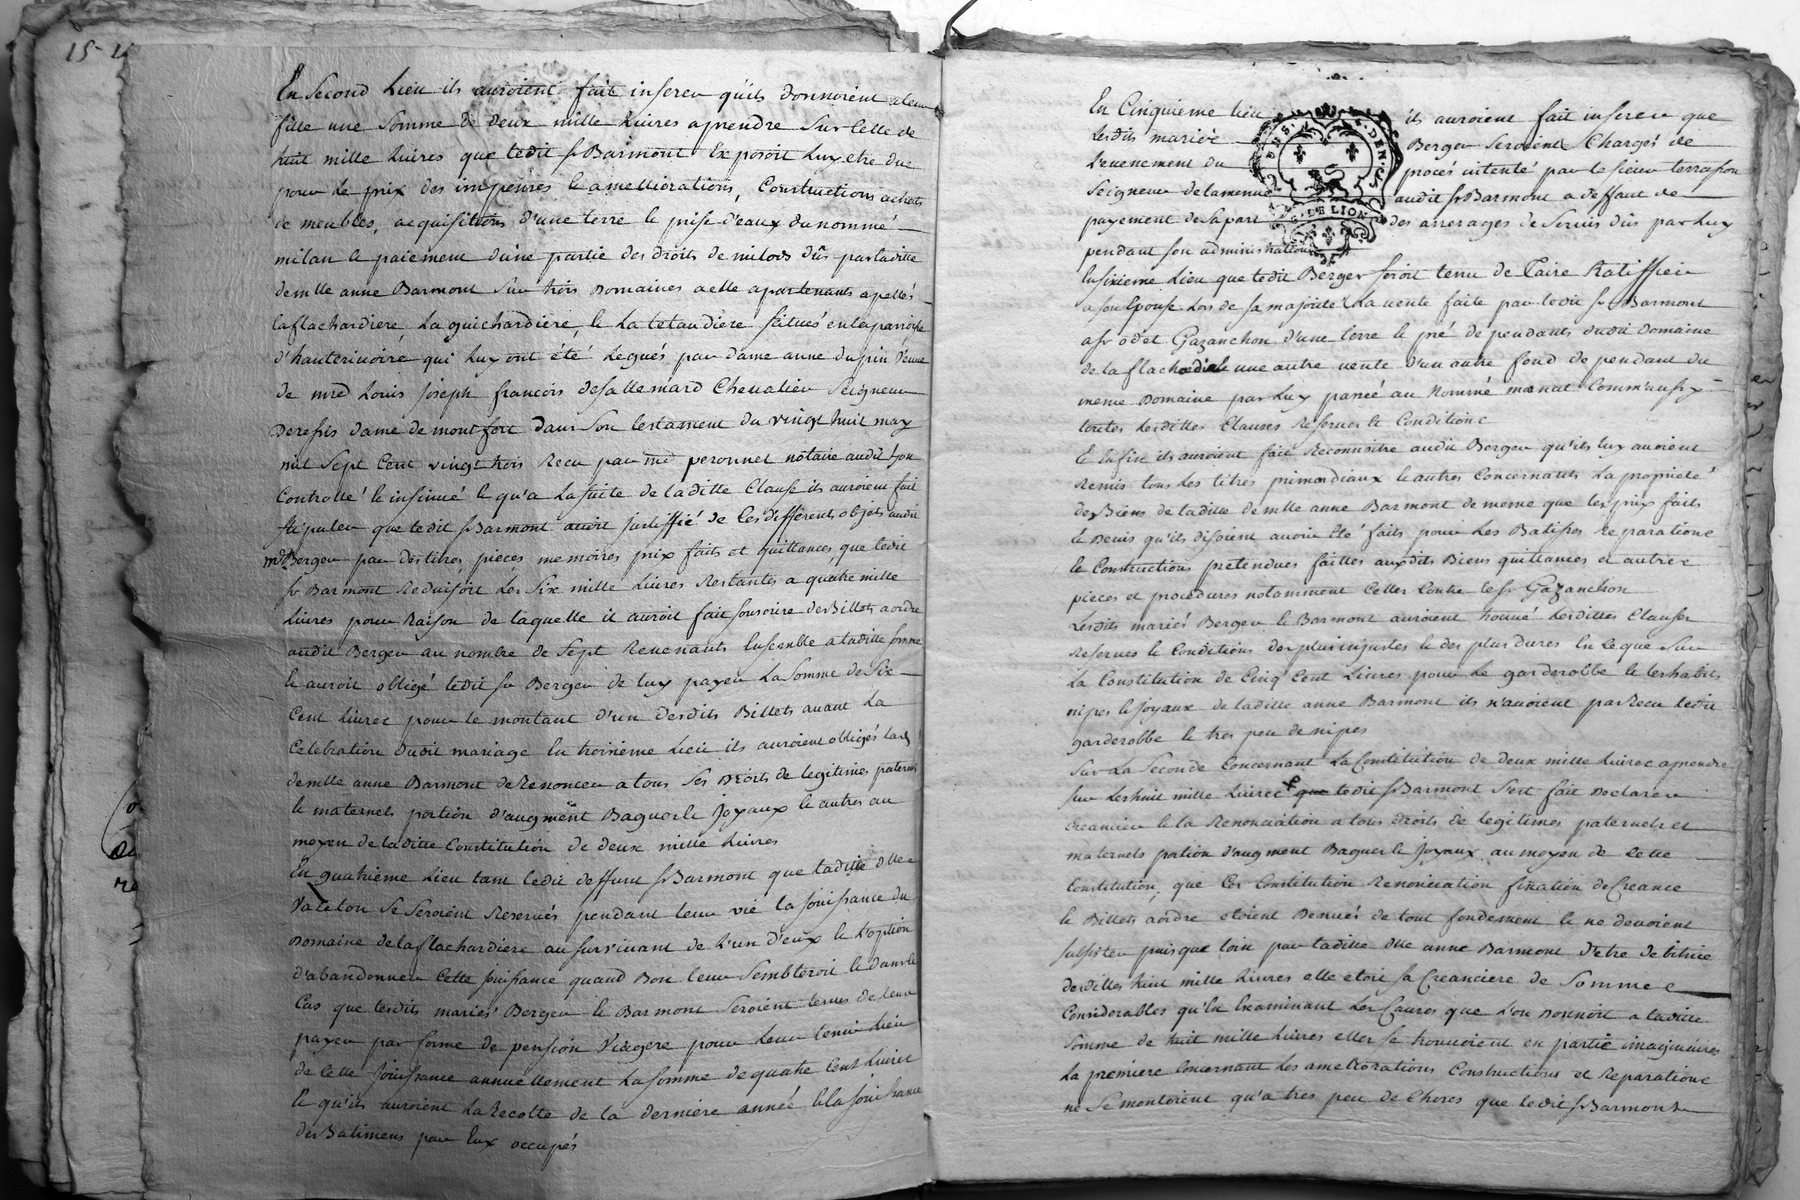 15-
En Second Lieu ils auroient fait inserer qu'ils donnoient a leur
fille une Somme de deux mille Livres aprendre Sur Celle de
huit mille Livres que ledit Sr Barmont Exposoit Luy etre due
pour Le prix des impenses & ameliorations, Constructions achats
de meubles, acquisitions d'une terre & prise d'eaux du nommé
milan le paiement d'une partie des droits de milods dûs par laditte
demlle anne Barmont Sur trois Domaines a elle apartenants apellés
la flachardiere La guichardiere, & La tetaudiere Situés en la paroisse
d'hauterivoire qui Luy ont été Legués par dame anne dupin veuve
de mre Louis Joseph françois de sallemard Chevalier Seigneur
De refsis dame de montfort dans Son testament du vingt huit may
mil Sept Cent vingt trois Recu par me peronnet notaire audit Lyon
Controllé & insinué & qu'a La suite de laditte Clause ils auroient fait
stipuler que ledit Sr Barmont avoit justiffié de Ces différents objets audit
me Berger par des titres pieces memoires prix faits et quittances que ledit
Sr Barmont Reduisoit Les Six mille Livres Restantes a quatre mille
Livres pour Raison de laquelle il auroit fait souscrire des Billets a ordre
audit Berger au nombre de Sept Revenants Ensemble a laditte somme
& auroit obligé ledit Sr Berger de luy payer La Somme de Six
Cent Livres pour le montant d'un desdits Billets avant La
Celebration dudit mariage En troisieme Lieu ils auroient obligés lad
demlle anne Barmont de Renoncer a tous Ses Droits de legitimes paternels
& maternels portion d'augment Bagues & Joyaux & autres au
moyen de laditte Constitution de deux mille Livres
En quatrieme Lieu tant ledit deffunt Sr Barmont que laditte dlle
Valeton Se Seroient Reservés pendant leur vie la jouissance du
Domaine de la flachardiere au survivant de L'un d'eux & L'option
d'abandonner Cette jouissance quand Bon leur Sembleroit & dans le
Cas que lesdits mariés Berger & Barmont Seroient tenus de leur
payer par forme de pension Viagere pour Leur tenir Lieu
de Cette Jouissance annuellement La somme de quatre Cent Livres
& qu'ils auroient La Recolte de la derniere année & la jouissance
des Batimens par Eux occupés
En Cinquieme lieu ils auroient fait inserer que
Lesdits mariés Berger Seroient Chargés de
L'evenement du procés intenté par le sieur terrasson
Seigneur de la menue audit Sr Barmont a deffaut de
payement de sa part des arrerages de Servis dûs par Luy
pendant son administration
GEN. DE LION
En sixieme Lieu que ledit Berger seroit tenu de faire Ratiffier
a son Epouse Lors de sa majorité La vente faite par ledit Sr Barmont
a sr odet Gazanchon d'une terre & pré dependants dudit domaine
de la flachardiere une autre vente d'un autre fond dependant du
même Domaine par Luy passée au Nommé manat Comm'aussy
toutes Lesdittes Clauses Reserves & Conditions
& Enfin ils auroient fait Reconnoitre audit Berger qu'ils luy avoient
Remis tous Les titres primordiaux & autres Concernants La proprieté
des Biens de laditte demlle anne Barmont de meme que les prix faits
& Devis qu'ils disoient avoir Eté faits pour Les Batisses Reparations
& Constructions pretendues faittes auxdits Biens quittances et autres
pieces et procedures notamment Celles Contre le Sr Gazanchon
Lesdits mariés Berger & Barmont auroient trouvé Lesdittes Clauses
Reserves & Conditions des plus injustes & des plus dures En ce que Sur
La Constitution de Cinq Cent Livres pour Le garderobbe & les habits
nipes & Joyaux de laditte anne Barmont ils n'avoient pas Recu ledit
garderobbe & tres peu de nipes
Sur La Seconde Concernant La Constitution de deux mille Livres aprendre
sur Les huit mille Livres que ledit Sr Barmont S'est fait Declarer
Creancier & la Renonciation a tous droits de legitimes paternels et
maternels portion d'augment Bagues & Joyaux au moyen de Cette
Constitution, que Ces Constitution Renonciation fixation de Creance
& Billets a ordre etoient Denués de tout fondement & ne devoient
subsister puisque loin par laditte dlle anne Barmont d'etre debitrice
desdittes huit mille Livres elle etoit sa Creanciere de Sommes
Considerables qu'En Examinant Les Causes que L'on Donnoit a laditte
Somme de huit mille Livres elles se trouvoient en partie imaginaires
La premiere Concernant Les ameliorations Constructions et Reparations
ne Se montoient qu'a tres peu de Choses que ledit Sr Barmont